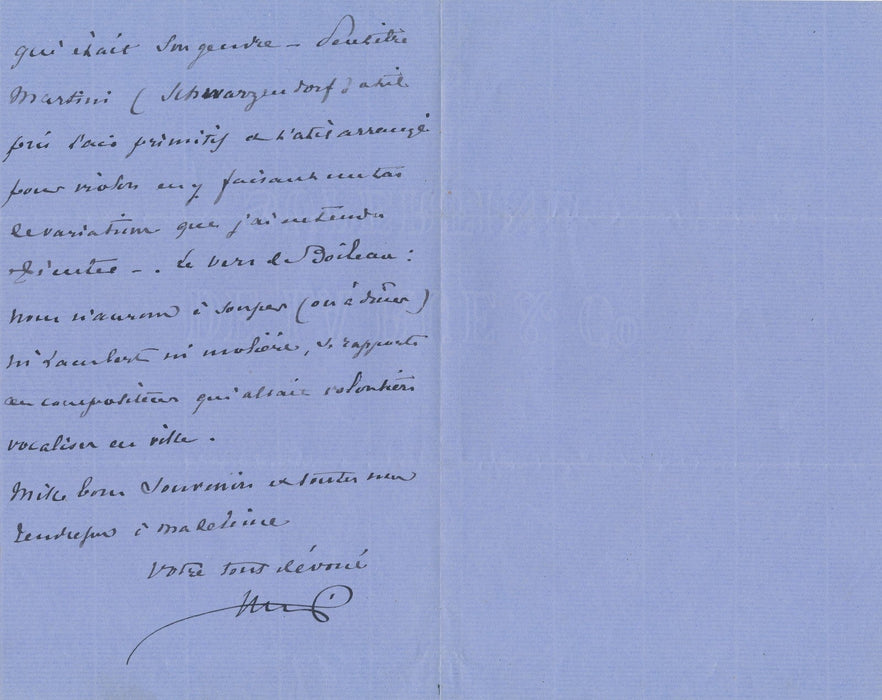 qui était son gendre – Peut être
Martini (Schwarzendorf) a-t-il
pris l'air primitif et l'a-t-il arrangé
pour violon en y faisant un tas
de variations que j'ai entendu
. – . Le vers de Boileau :
nous n'aurons à souper (ou à dîner)
ni Lambert ni molière, se rapporte
au compositeur qui allait volontiers
vocaliser en ville .
Mille bons souvenirs et toutes mes
tendresses à Madeleine
Votre tout dévoué